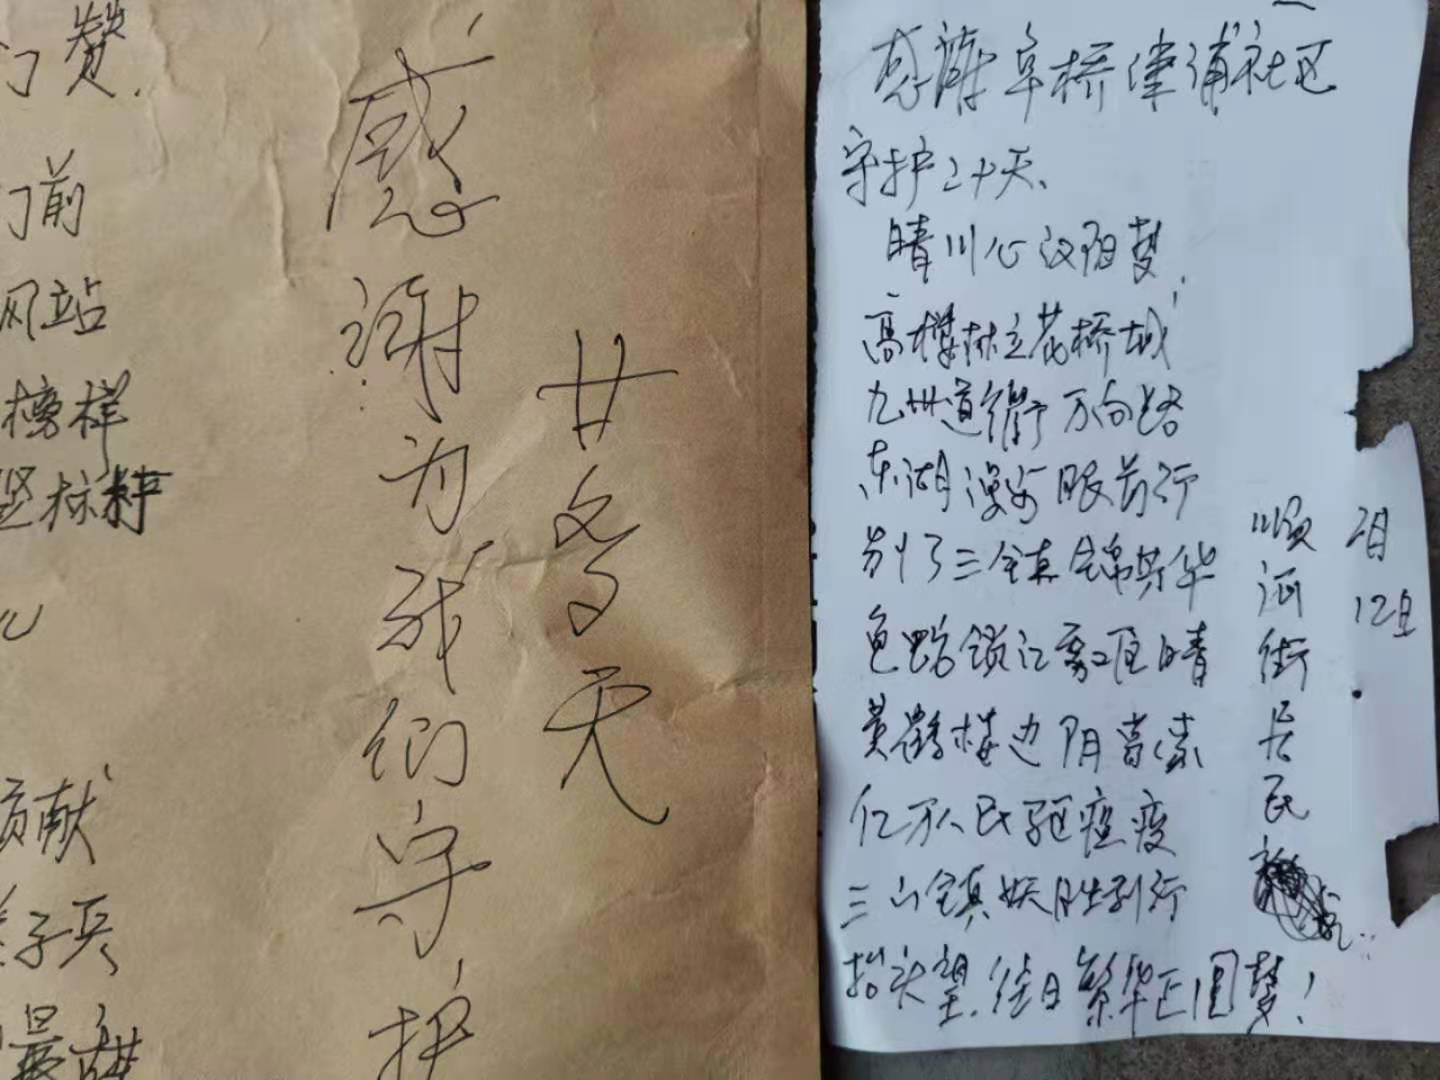 门赞.
门前
网站
榜样
竖标杆
贡献
子兵
最
感谢为我们守护
廿多天
感谢阜桥津浦社区
守护二十天、
晴川心汉阳梦
高楼林立花桥城
九州道衢万向路
东湖漫步眼前行
别了三镇锦繁华
龟蛇锁江雾区晴
黄鹤楼边阴
亿万人民驱瘟疫
三山镇妖胜利行
抬头望.往日繁华正圆梦!
顺河街居民
2月
12日